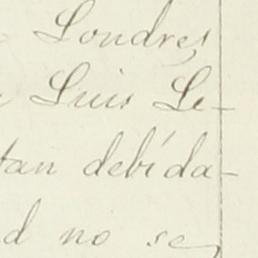 Londres
Luis Le-
tan debida-
d no se